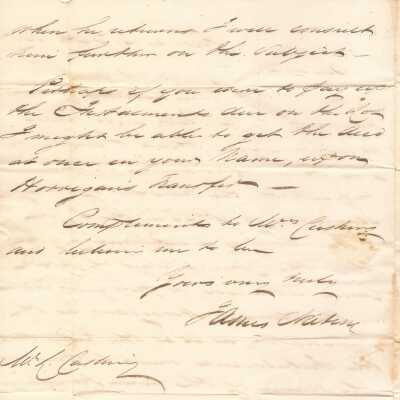 when he returns I will consult
him further on the subject –
Perhaps if you were to pay up
the Instalments due on the
I might be able to get the deed
at once in your Name, upon
Horrigan's transfer –
Compliments to Mrs
and believe me to be
Yours very truly
James
Mr